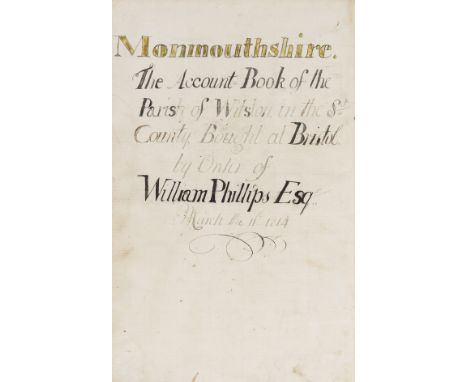 Monmouthshire.
The Account Book of the
Parish of Wilston in the Sd
County, Bought at Bristol
by Order of
William Phillips Esqr
March the 1814